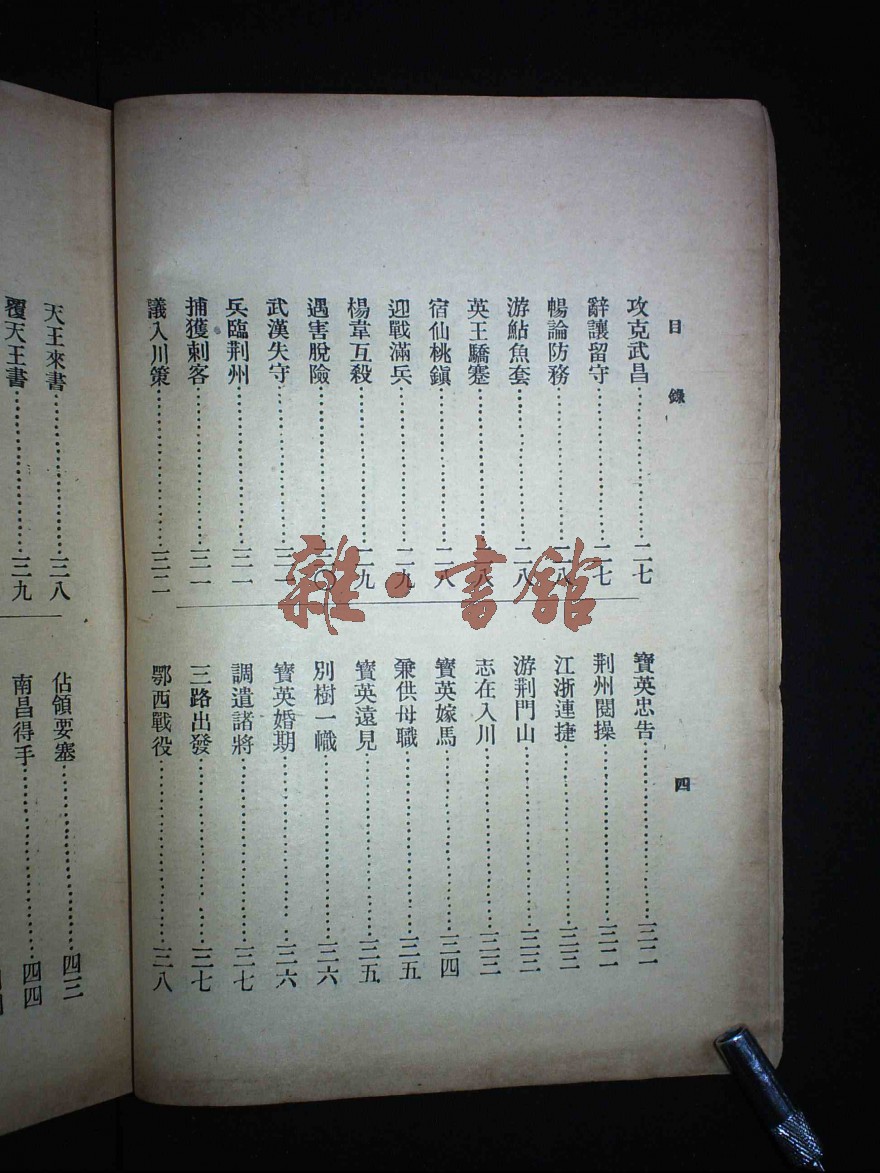 目錄
四
攻克武昌……二七
辭讓留守……二七
暢論防務……二八
游鮎魚套……二八
英王驕蹇……二八
宿仙桃鎮……二八
迎戰滿兵……二九
楊韋互殺……二九
遇害脫險……三〇
武漢失守……三一
兵臨荆州……三一
捕獲刺客……三一
議入川策……三二
寶英忠告……三二
荆州閱操……三二
江浙連捷……三三
游荆門山……三三
志在入川……三三
寶英嫁馬……三四
兼供母職……三五
寶英遠見……三五
別樹一幟……三六
寶英婚期……三六
調遣諸將……三七
三路出發……三七
鄂西戰役……三八
天王來書……三八
覆天王書……三九
佔領要塞……四三
南昌得手……四四
雜·書館